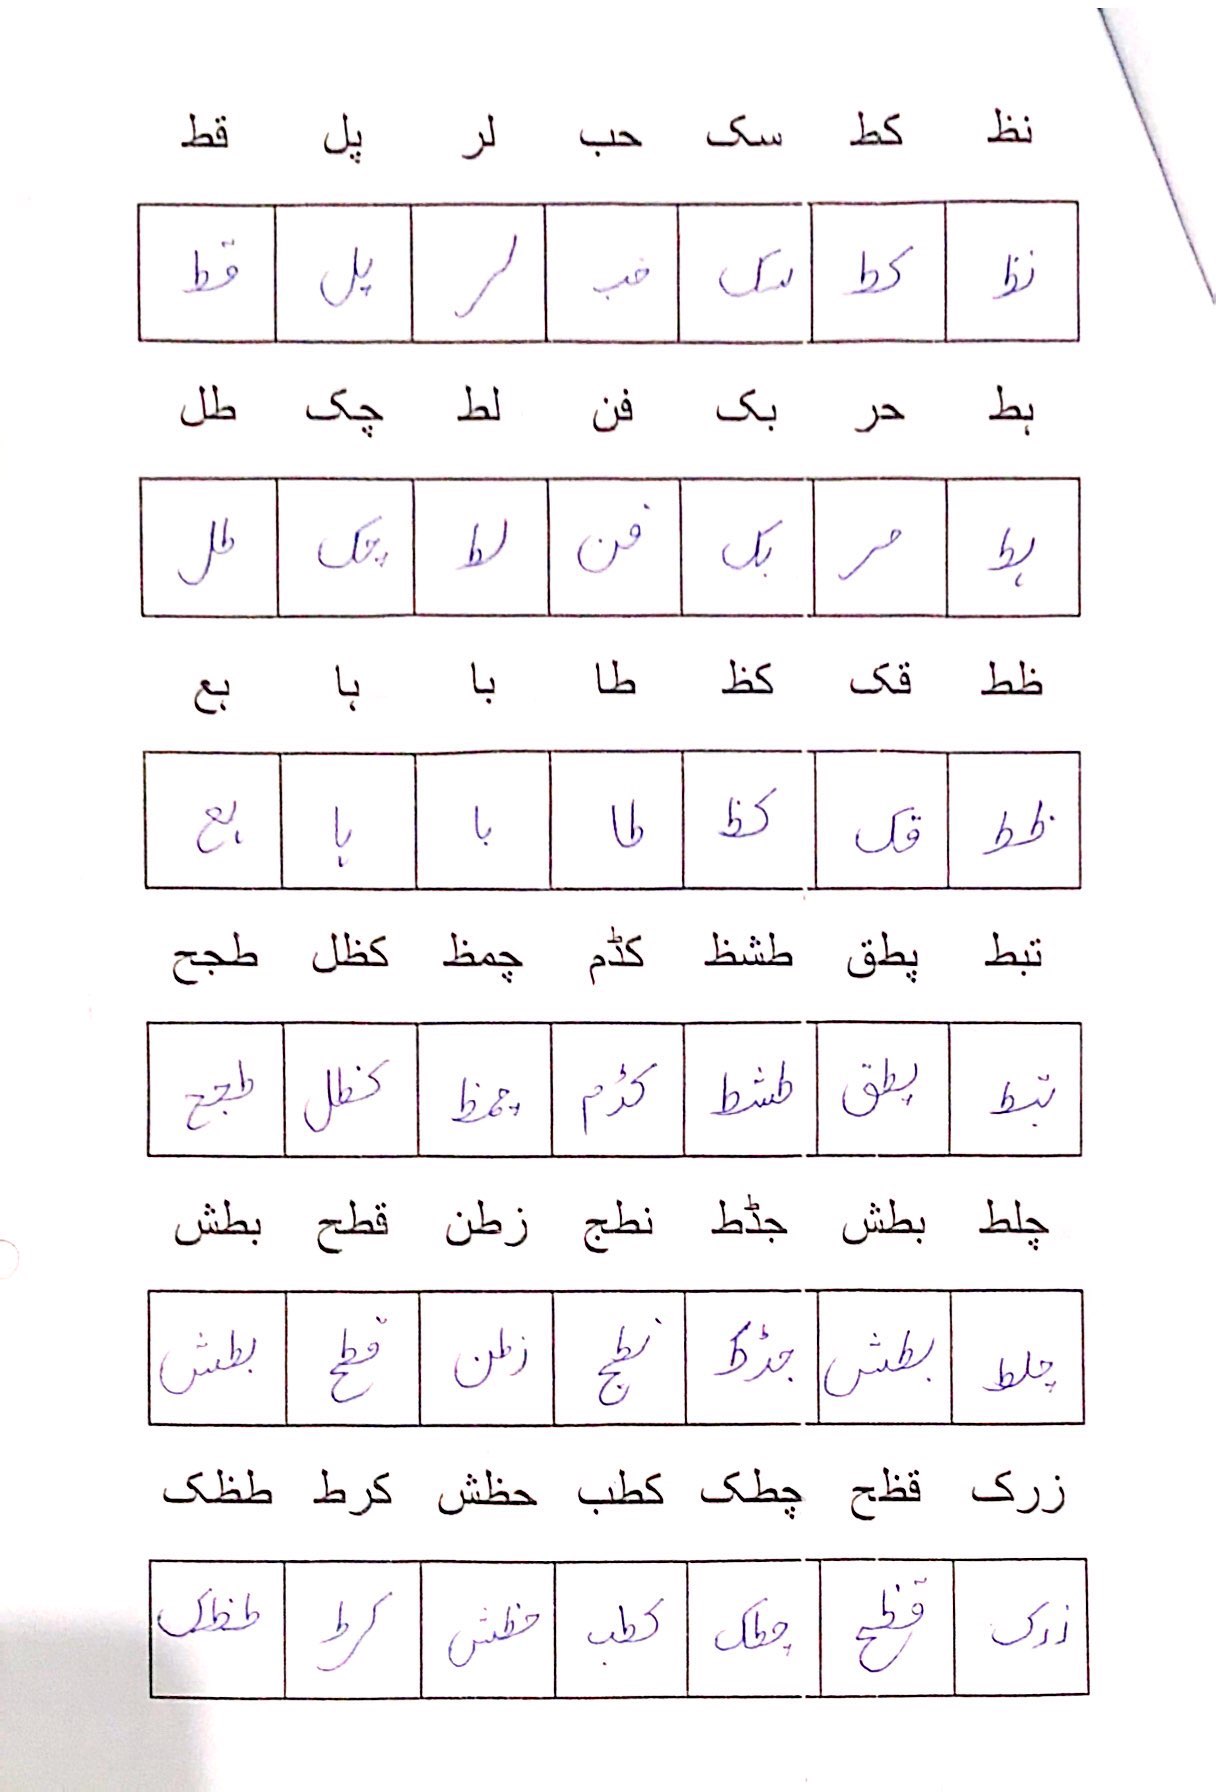 نظ کط سک حب لر پل قط
نظ کط سک حب لر پل قط
ہط حر بک فن لط چک طل
ہط حر بک فن لط چک طل
ظط قک کظ طا با ہا ہع
ظط قک کظ طا با ہا ہع
تبط پطق طشظ کڈم چمظ کظل طجح
تبط پطق طشط کڈم چمظ کظل طجح
چلط بطش جڈط نطج زطن قطح بطش
چلط بطش جڈط نطج زطن قطح بطش
زرک قظح چطک کطب حظش کرط طظک
زرک قظح چطک کطب حظش کرط طظک